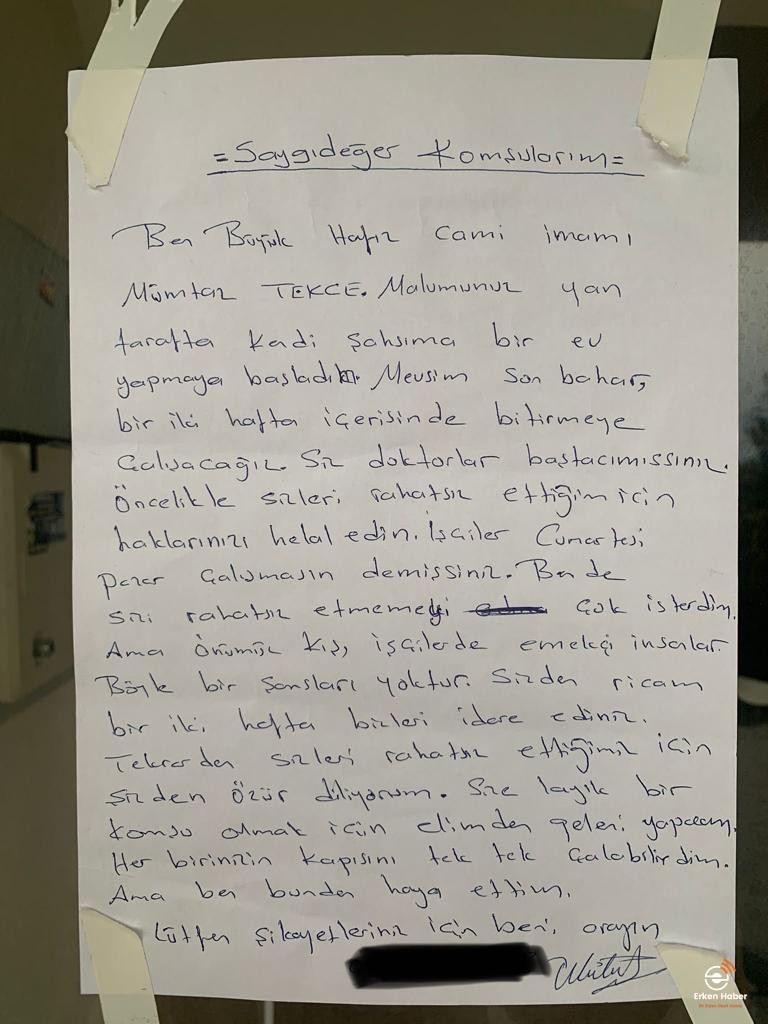 =Saygıdeğer Komşularım=
Ben Büyük Hafız Cami imamı
Mümtaz TEKCE. Malumunuz yan
tarafta kendi şahsıma bir ev
yapmaya başladık. Mevsim son bahar,
bir iki hafta içerisinde bitirmeye
Çalışacağız. Siz doktorlar baştacımıssınız.
Öncelikle sizleri rahatsız ettiğim için
haklarınızı helal edin. İşçiler Cumartesi
pazar Çalışmasın demişsiniz. Ben de
sizi rahatsız etmemeyi çok isterdim.
Ama Önümüz Kış, işçilerde emekçi insanlar.
Böyle bir şansları yoktur. Sizden ricam
bir iki hafta bizleri idare ediniz.
Tekrardan sizleri rahatsız ettiğimiz için
sizden Özür diliyorum. Size layık bir
Komşu olmak için elimden geleni yapacam.
Her birinizin kapısını tek tek Çalabilirdim.
Ama ben bundan haya ettim.
Lütfen Şikayetleriniz için beni arayın
Erken Haber